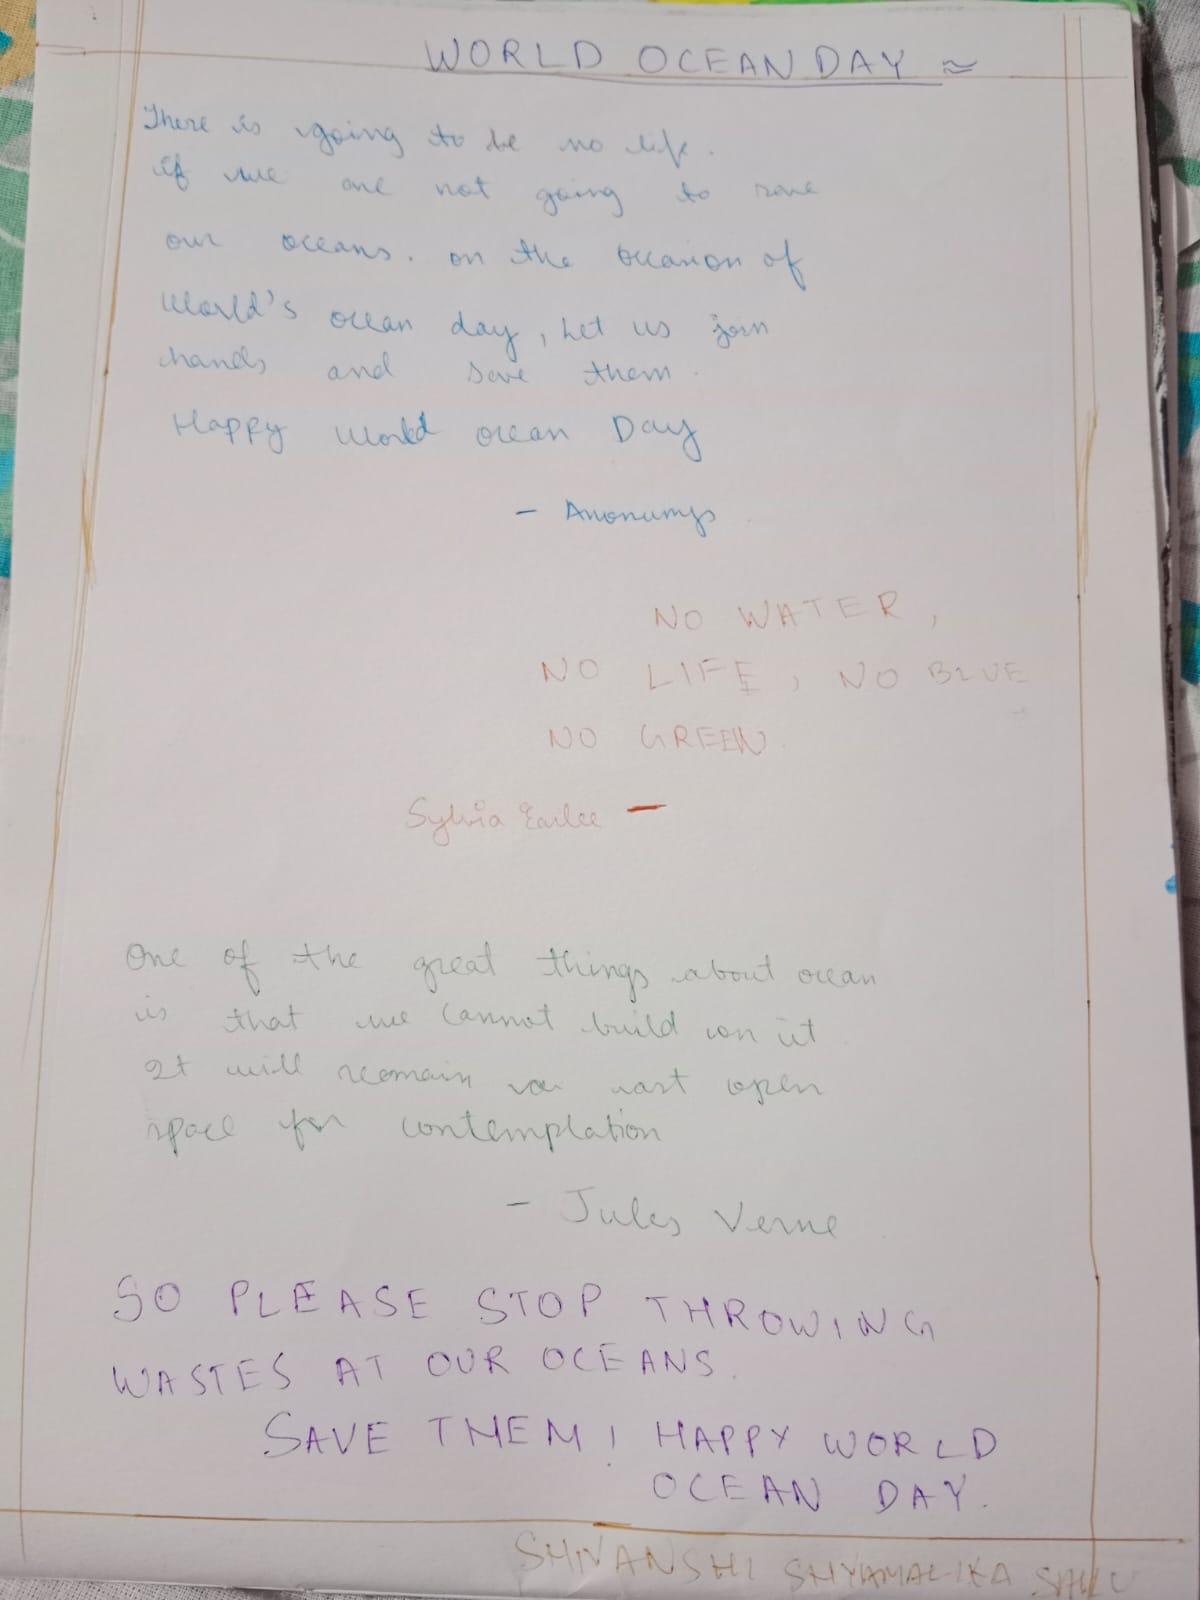 WORLD OCEAN DAY
There is going to be no life.
if we are not going to save
our oceans. on the occasion of
World's ocean day, Let us join
hands and save them.
Happy World ocean Day
- Anonumys
NO WATER,
NO LIFE, NO BLUE
NO GREEN.
Sylvia Earlee -
One of the great things about ocean
is that we cannot build on it
It will remain a vast open
space for contemplation
- Jules Verne
SO PLEASE STOP THROWING
WASTES AT OUR OCEANS.
SAVE THEM! HAPPY WORLD
OCEAN DAY.
SHIVANSHI SHYAMALIKA SAHU